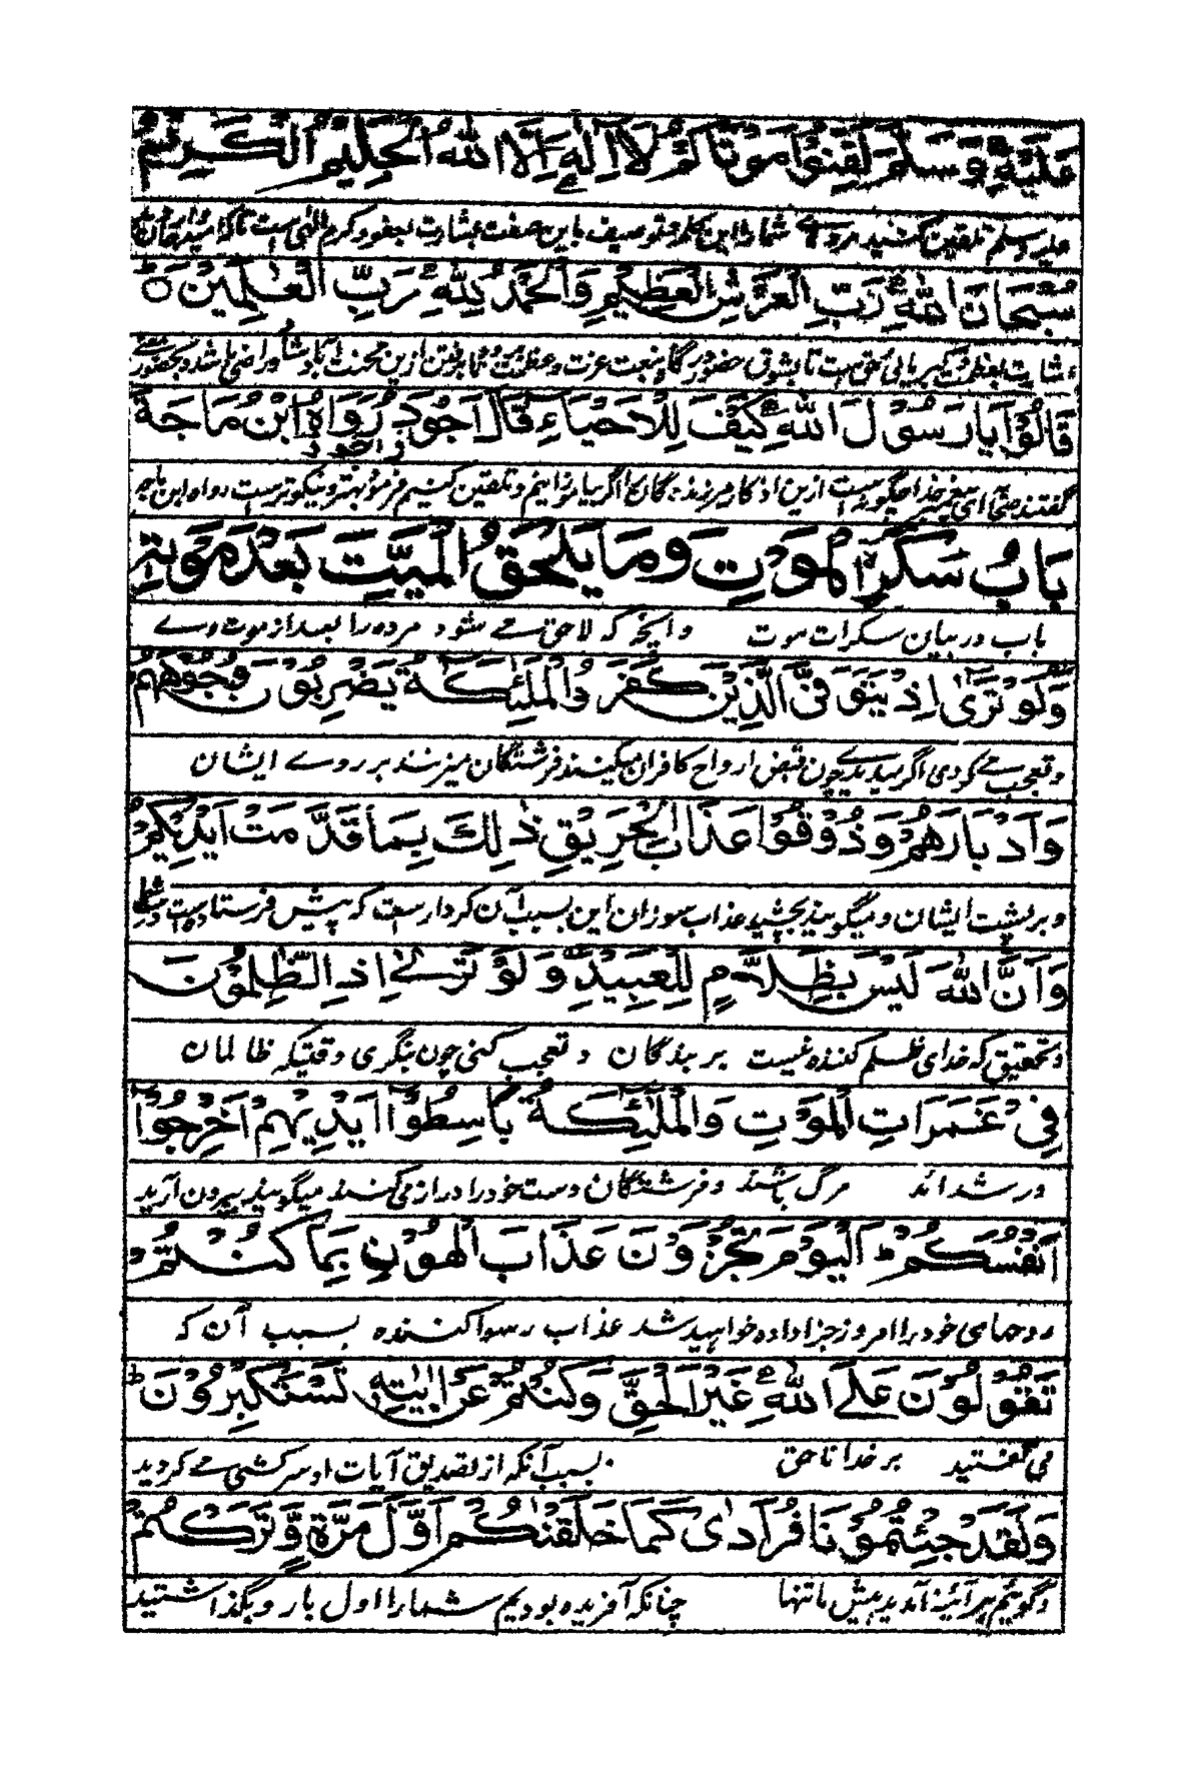 عَلَيْهِ وَسَلَّمَ لَقِّنُوْا مَوْتَاكُمْ لَا اِلٰهَ اِلَّا اللّٰهُ الْحَلِيْمُ الْكَرِيْمُ
عليه وسلم تلقين كنيد مرده هاے شمارا اين كلمه و توصيف باين صفت بشارت بعفو و كرم الهى است تا كه
سُبْحَانَ اللّٰهِ رَبِّ الْعَرْشِ الْعَظِيْمِ وَالْحَمْدُ لِلّٰهِ رَبِّ الْعٰلَمِيْنَ ط
حق است تا بشوق حضور درگاه عزت و عظمت رفتن ازين محنت آباد شاد و راضى باشد
قَالُوْا يَا رَسُوْلَ اللّٰهِ كَيْفَ لِلْاَحْيَاءِ قَالَ اَجْوَدُ وَاَجْوَدُ رَوَاهُ ابْنُ مَاجَةَ
گفتند صحابه اى پيغمبر خدا چگونه است ازين اذكار مر زندگان را اگر بياموزانيم و تلقين كنيم فرمود بهتر و نيكوتر است رواه ابن ماجه
بَابُ سَكَرَاتِ الْمَوْتِ وَمَا يَلْحَقُ الْمَيِّتَ بَعْدَ مَوْتِهِ
باب در بيان سكرات موت و آنچه كه لاحق مے شود مرده را بعد از موت وے
وَلَوْ تَرٰى اِذْ يَتَوَفَّى الَّذِيْنَ كَفَرُوا الْمَلٰئِكَةُ يَضْرِبُوْنَ وُجُوْهَهُمْ
و تعجب مے كردى اگر ميديدے چون قبض ارواح كافران ميكنند فرشتگان ميزنند بر روے ايشان
وَاَدْبَارَهُمْ وَذُوْقُوْا عَذَابَ الْحَرِيْقِ ذٰلِكَ بِمَا قَدَّمَتْ اَيْدِيْكُمْ
و بر پشت ايشان و ميگويند بچشيد عذاب سوزان اين بسبب آن كردار است كه پيش فرستاده است
وَاَنَّ اللّٰهَ لَيْسَ بِظَلَّامٍ لِّلْعَبِيْدِ وَلَوْ تَرٰى اِذِ الظّٰلِمُوْنَ
و تحقيق كه خداى ظلم كننده نيست بر بندگان و تعجب كنى چون بنگرى وقتيكه ظالمان
فِيْ غَمَرَاتِ الْمَوْتِ وَالْمَلٰئِكَةُ بَاسِطُوْا اَيْدِيْهِمْ اَخْرِجُوْا
در شدائد مرگ باشند و فرشتگان دست خود را دراز مى كنند ميگويند بيرون آريد
اَنْفُسَكُمْ ط اَلْيَوْمَ تُجْزَوْنَ عَذَابَ الْهُوْنِ بِمَا كُنْتُمْ
روحهاى خود را امروز جزا داده خواهيد شد عذاب رسوا كننده بسبب آن كه
تَقُوْلُوْنَ عَلَى اللّٰهِ غَيْرَ الْحَقِّ وَكُنْتُمْ عَنْ اٰيٰتِهٖ تَسْتَكْبِرُوْنَ ط
مى گفتيد بر خدا ناحق بسبب آنكه از تصديق آيات او سركشى مے كرديد
وَلَقَدْ جِئْتُمُوْنَا فُرَادٰى كَمَا خَلَقْنٰكُمْ اَوَّلَ مَرَّةٍ وَّتَرَكْتُمْ
و گوئيم هر آئينه آمديد پيش ما تنها چنانكه آفريده بوديم شمارا اول بار و بگذاشتيد